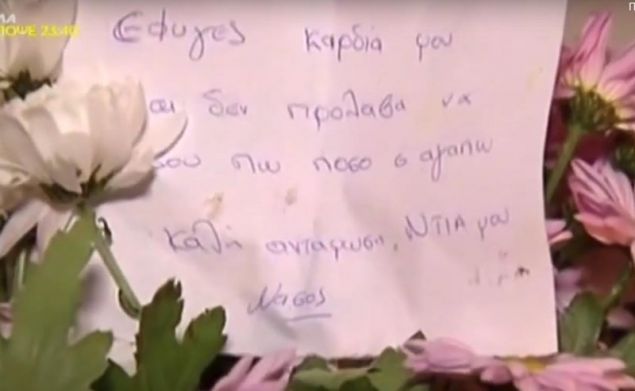 ΠΟΨΕ 23:40
Εφυγες καρδιά μου
και δεν προλαβα να
σου πω ποσο σ αγαπω
Καλή ανταμωση, ΝΤΙΑ μου
Νασος